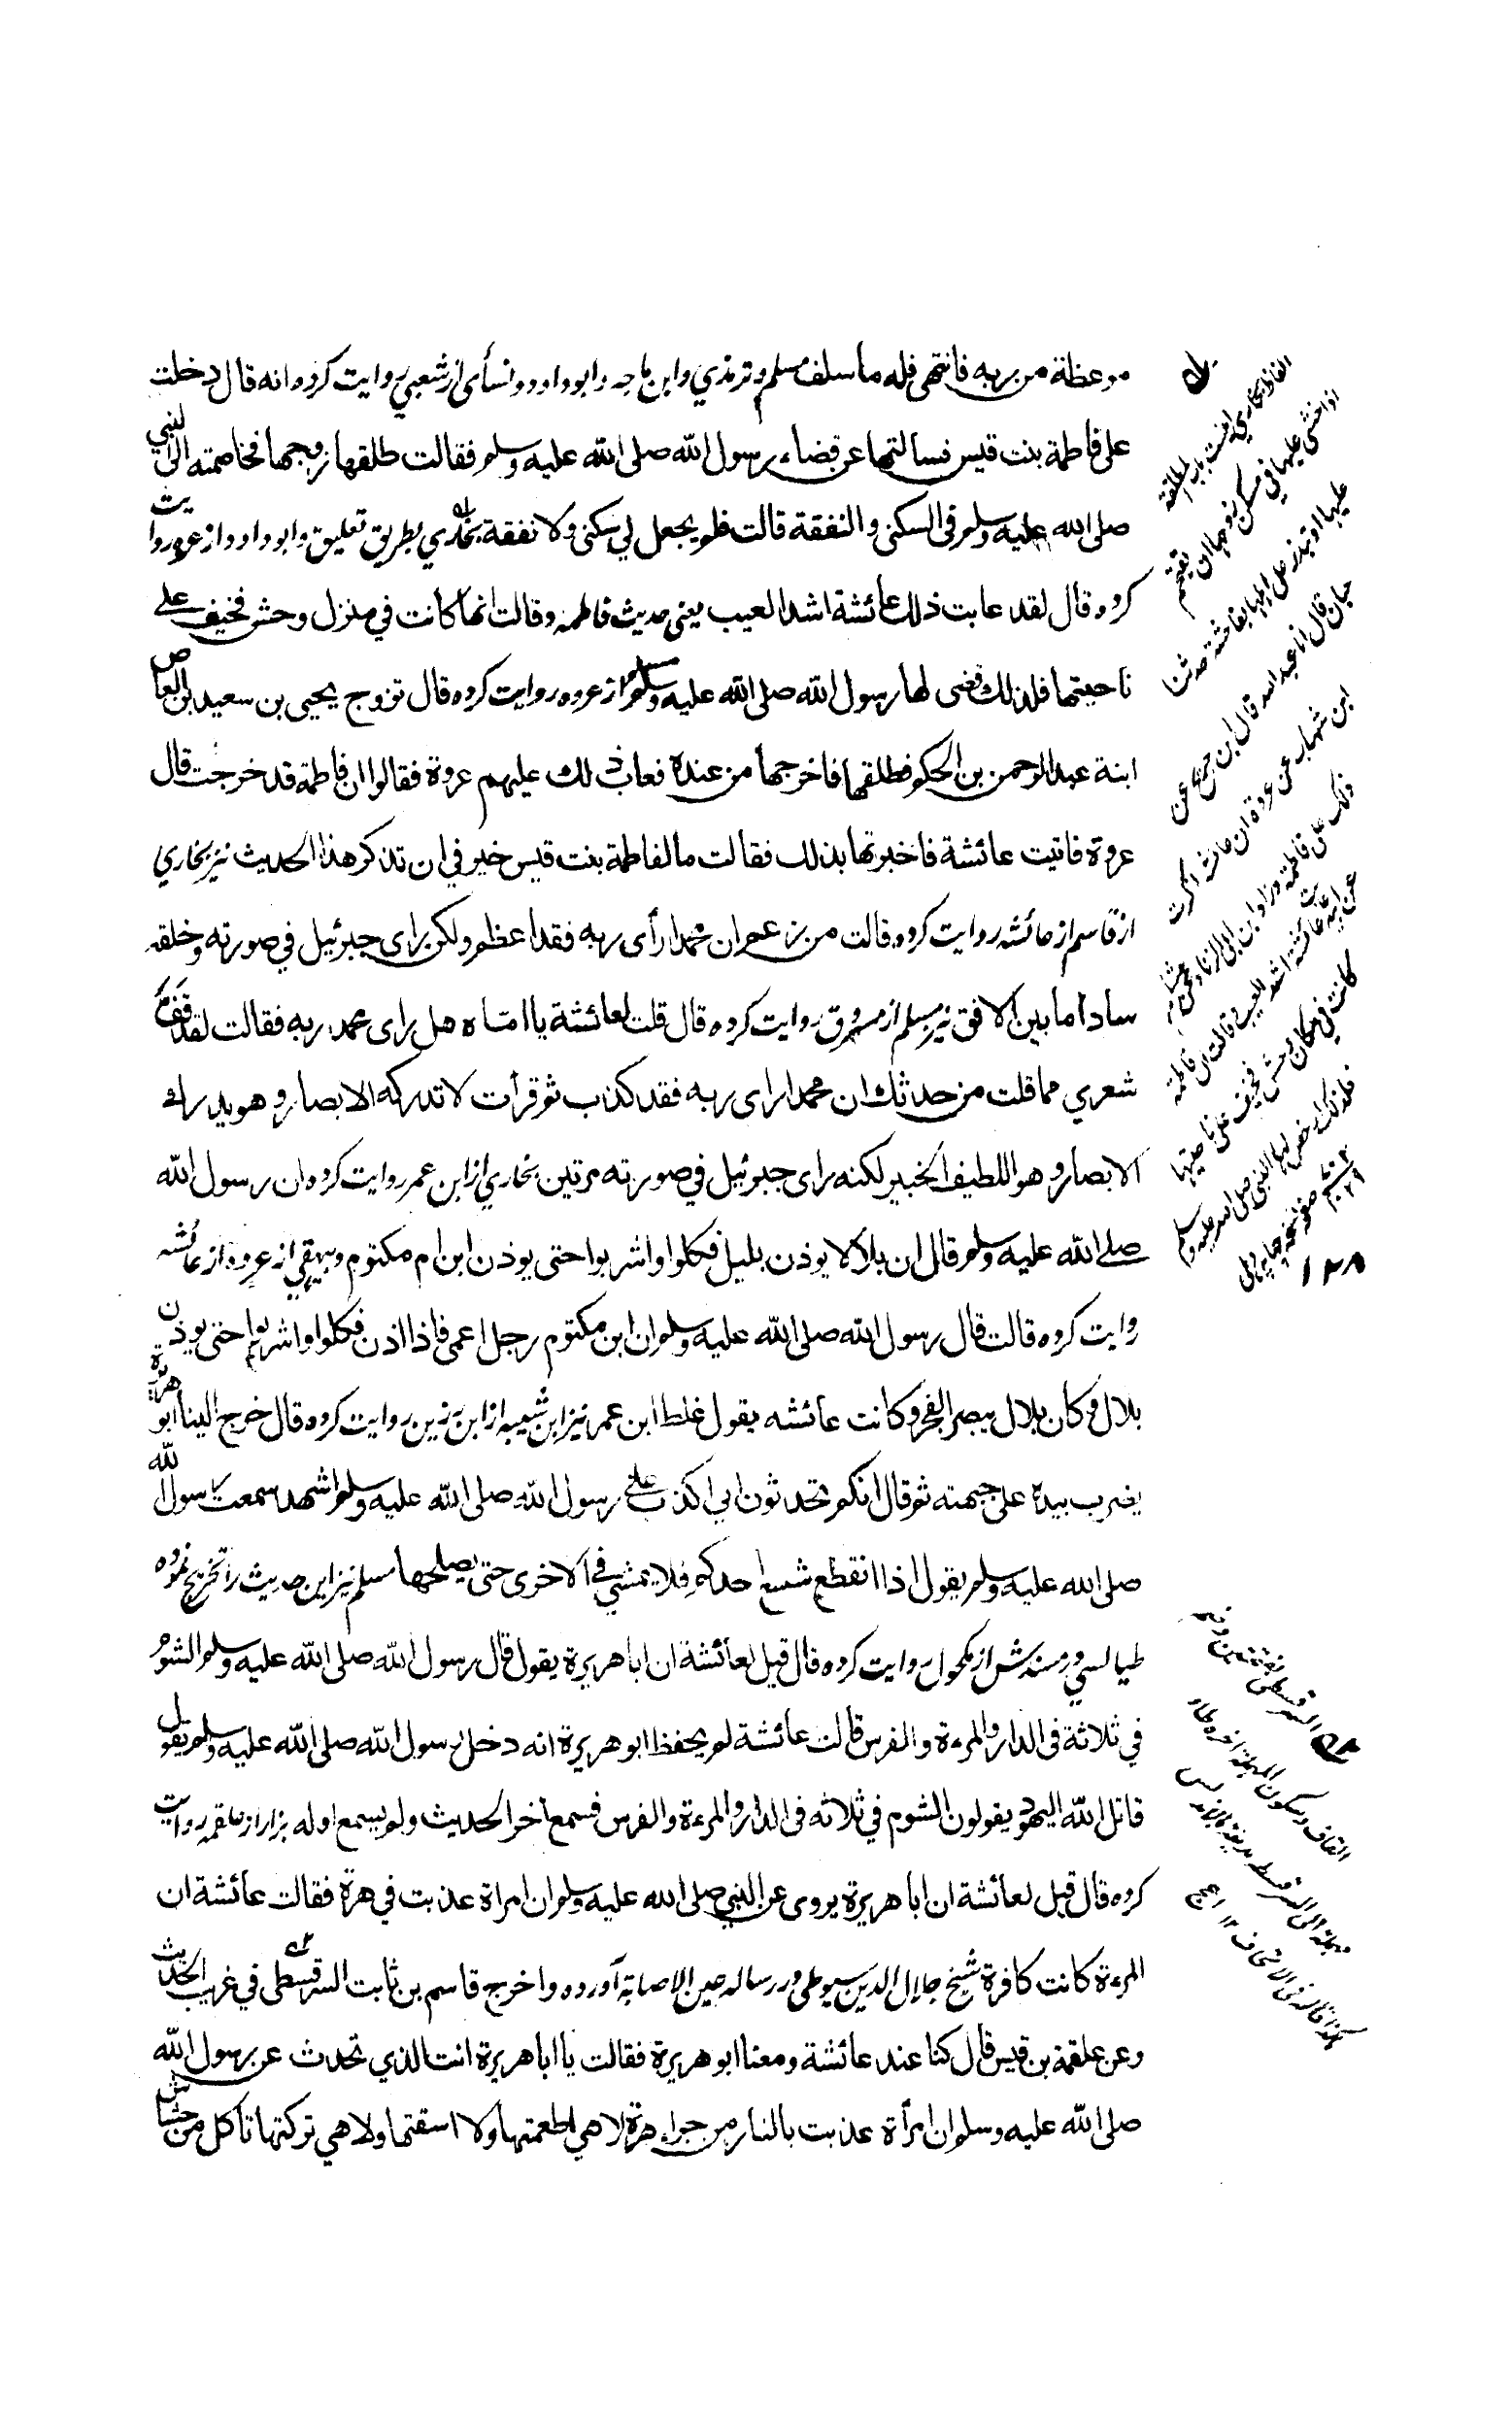 موعظة من ربه فانتهى فله ما سلف مسلم و ترمذي و ابن ماجه و ابو داود و نسأى از شعبي روايت كرده انه قال دخلت
على فاطمة بنت قيس فسالتها عن قضاء رسول الله صلى الله عليه وسلم فقالت طلقها زوجها فخاصمته الى النبي
صلى الله عليه وسلم فى السكنى والنفقة قالت فلم يجعل لي سكنى ولا نفقة بخاري بطريق تعليق و ابو داود از عروه روايت
كرده قال لقد عابت ذلك عائشة اشد العيب يعني حديث فاطمه وقالت انها كانت في منزل وحش فخيف على
ناحيتها فلذلك قضى لها رسول الله صلى الله عليه وسلم مسلم از عروه روايت كرده قال تزوج يحيى بن سعيد بن العاص
ابنة عبد الرحمن بن الحكم فطلقها فاخرجها من عنده فعاب ذلك عليهم عروة فقالوا ان فاطمة قد خرجت قال
عروة فاتيت عائشة فاخبرتها بذلك فقالت ما لفاطمة بنت قيس خير في ان تذكر هذا الحديث نيز بخاري
از قاسم از عائشه روايت كرده قالت من زعم ان محمدا رأى ربه فقد اعظم ولكن راى جبرئيل في صورته وخلقه
سادا ما بين الافق نيز مسلم از مسروق روايت كرده قال قلت لعائشة يا امتاه هل راى محمد ربه فقالت لقد قفّ
شعري مما قلت من حدثك ان محمدا راى ربه فقد كذب ثم قرأت لا تدركه الابصار وهو يدرك
الابصار وهو اللطيف الخبير لكنه راى جبرئيل في صورته مرتين بخاري از ابن عمر روايت كرده ان رسول الله
صلے الله عليه وسلم قال ان بلالا يوذن بليل فكلوا واشربوا حتى يوذن ابن ام مكتوم و بيهقي از عروه از عائشه
روايت كرده قالت قال رسول الله صلى الله عليه وسلم ان ابن مكتوم رجل اعمى فاذا اذن فكلوا واشربوا حتى يوذن
بلال وكان بلال يبصر الفجر وكانت عائشه يقول غلط ابن عمر نيز ابن شيبه از ابن رزين روايت كرده قال خرج الينا ابو هريرة
يضرب بيده على جبهته ثم قال انكم تحدثون اني اكذب على رسول الله صلى الله عليه وسلم اشهد سمعت رسول الله
صلى الله عليه وسلم يقول اذا انقطع شسع احدكم فلا يمشي في الاخرى حتى يصلحها مسلم نيز اين حديث را تخريج نموده
طيالسي در مسندش از مكحول روايت كرده قال قيل لعائشة ان ابا هريرة يقول قال رسول الله صلى الله عليه وسلم الشوم
في ثلاثة فى الدار والمرءة والفرس قالت عائشة لم يحفظ ابو هريرة انه دخل رسول الله صلى الله عليه وسلم يقول
قاتل الله اليهود يقولون الشوم في ثلاثه فى الدار والمرءة والفرس فسمع آخر الحديث ولم يسمع اوله بزار از علقمه روايت
كرده قال قيل لعائشة ان ابا هريرة يروى عن النبي صلى الله عليه وسلم ان امراة عذبت في هرة فقالت عائشة ان
المرءة كانت كافرة شيخ جلال الدين سيوطى در رساله عين الاصابة آورده واخرج قاسم بن ثابت السرقسطى في غريب الحديث
وعن علقمة بن قيس قال كنا عند عائشة ومعنا ابو هريرة فقالت يا ابا هريرة انت الذي تحدث عن رسول الله
صلى الله عليه وسلم ان امرأة عذبت بالنار من جراء هرة لا هي اطعمتها ولا اسقتها ولا هي تركتها تاكل من خشاش
الفاظ بخاري اينست باب المطلقة
اذا خشى عليها في مسكن زوجها ان يقتحم
عليها او تبذو على اهلها بفاحشة حدثنا
حبان قال انا عبد الله قال ابن جريج عن
ابن شهاب عن عروة ان عائشة انكرت
ذلك على فاطمة وزاد ابن ابى الزناد عن هشام
عن ابيه عابت عائشة اشد العيب وقالت ان فاطمة
كانت في مكان وحش فخيف على ناحيتها
فلذلك ارخص لها النبي صلى الله عليه وسلم
السرقسطى
القاف وسكون المهملة آخره طاء